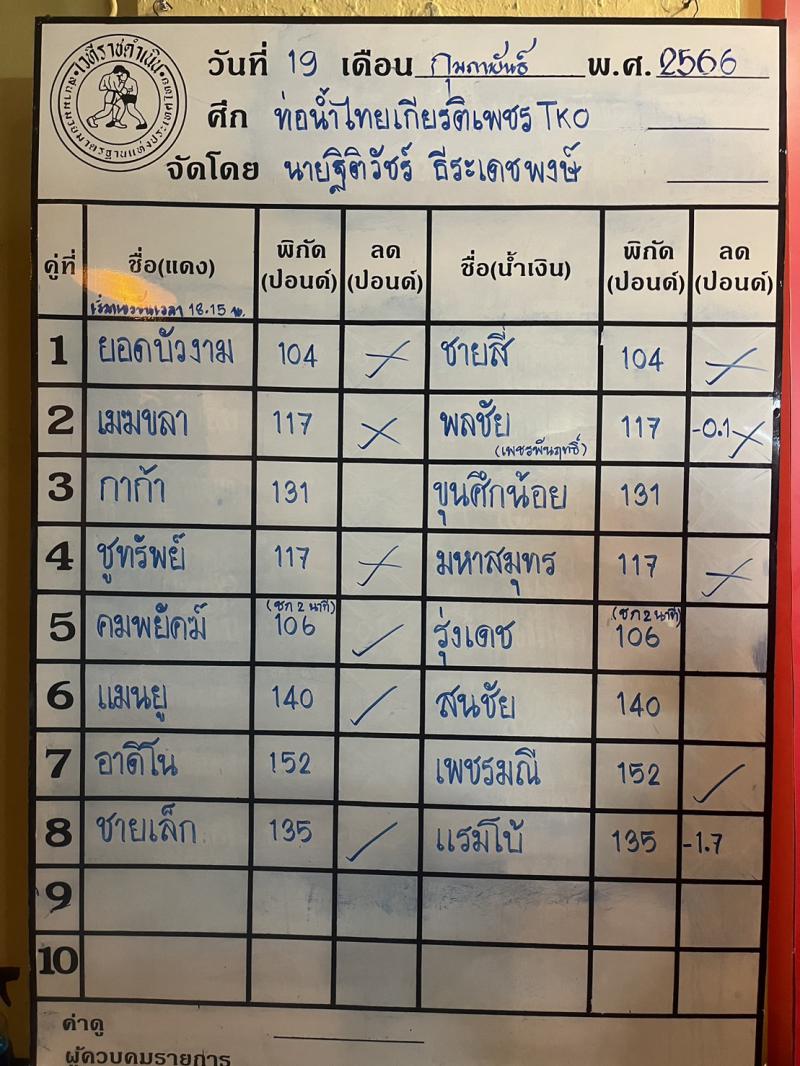 เวทีราชดำเนิน
สนามมวยมาตรฐานแห่งประเทศไทย
วันที่ 19 เดือน กุมภาพันธ์ พ.ศ. 2566
ศึก ท่อน้ำไทยเกียรติเพชร TKO
จัดโดย นายฐิติวัชร์ ธีระเดชพงษ์
คู่ที่ ชื่อ(แดง) พิกัด (ปอนด์) ลด (ปอนด์) ชื่อ(น้ำเงิน) พิกัด (ปอนด์) ลด (ปอนด์)
เวลา 18.15 น.
1 ยอดบัวงาม 104 ชายสี่ 104
2 เมฆขลา 117 พลชัย (เพชรพันฤทธิ์) 117 -0.1
3 กาก้า 131 ขุนศึกน้อย 131
4 ชูทรัพย์ 117 มหาสมุทร 117
5 คมพยัคฆ์ (ชก 2 นาที) 106 รุ่งเดช (ชก 2 นาที) 106
6 แมนยู 140 ✓ สนชัย 140
7 อาดีโน 152 เพชรมณี 152 ✓
8 ชายเล็ก 135 ✓ แรมโบ้ 135 -1.7
9
10
ค่าดู
ผู้ควบคุมรายการ